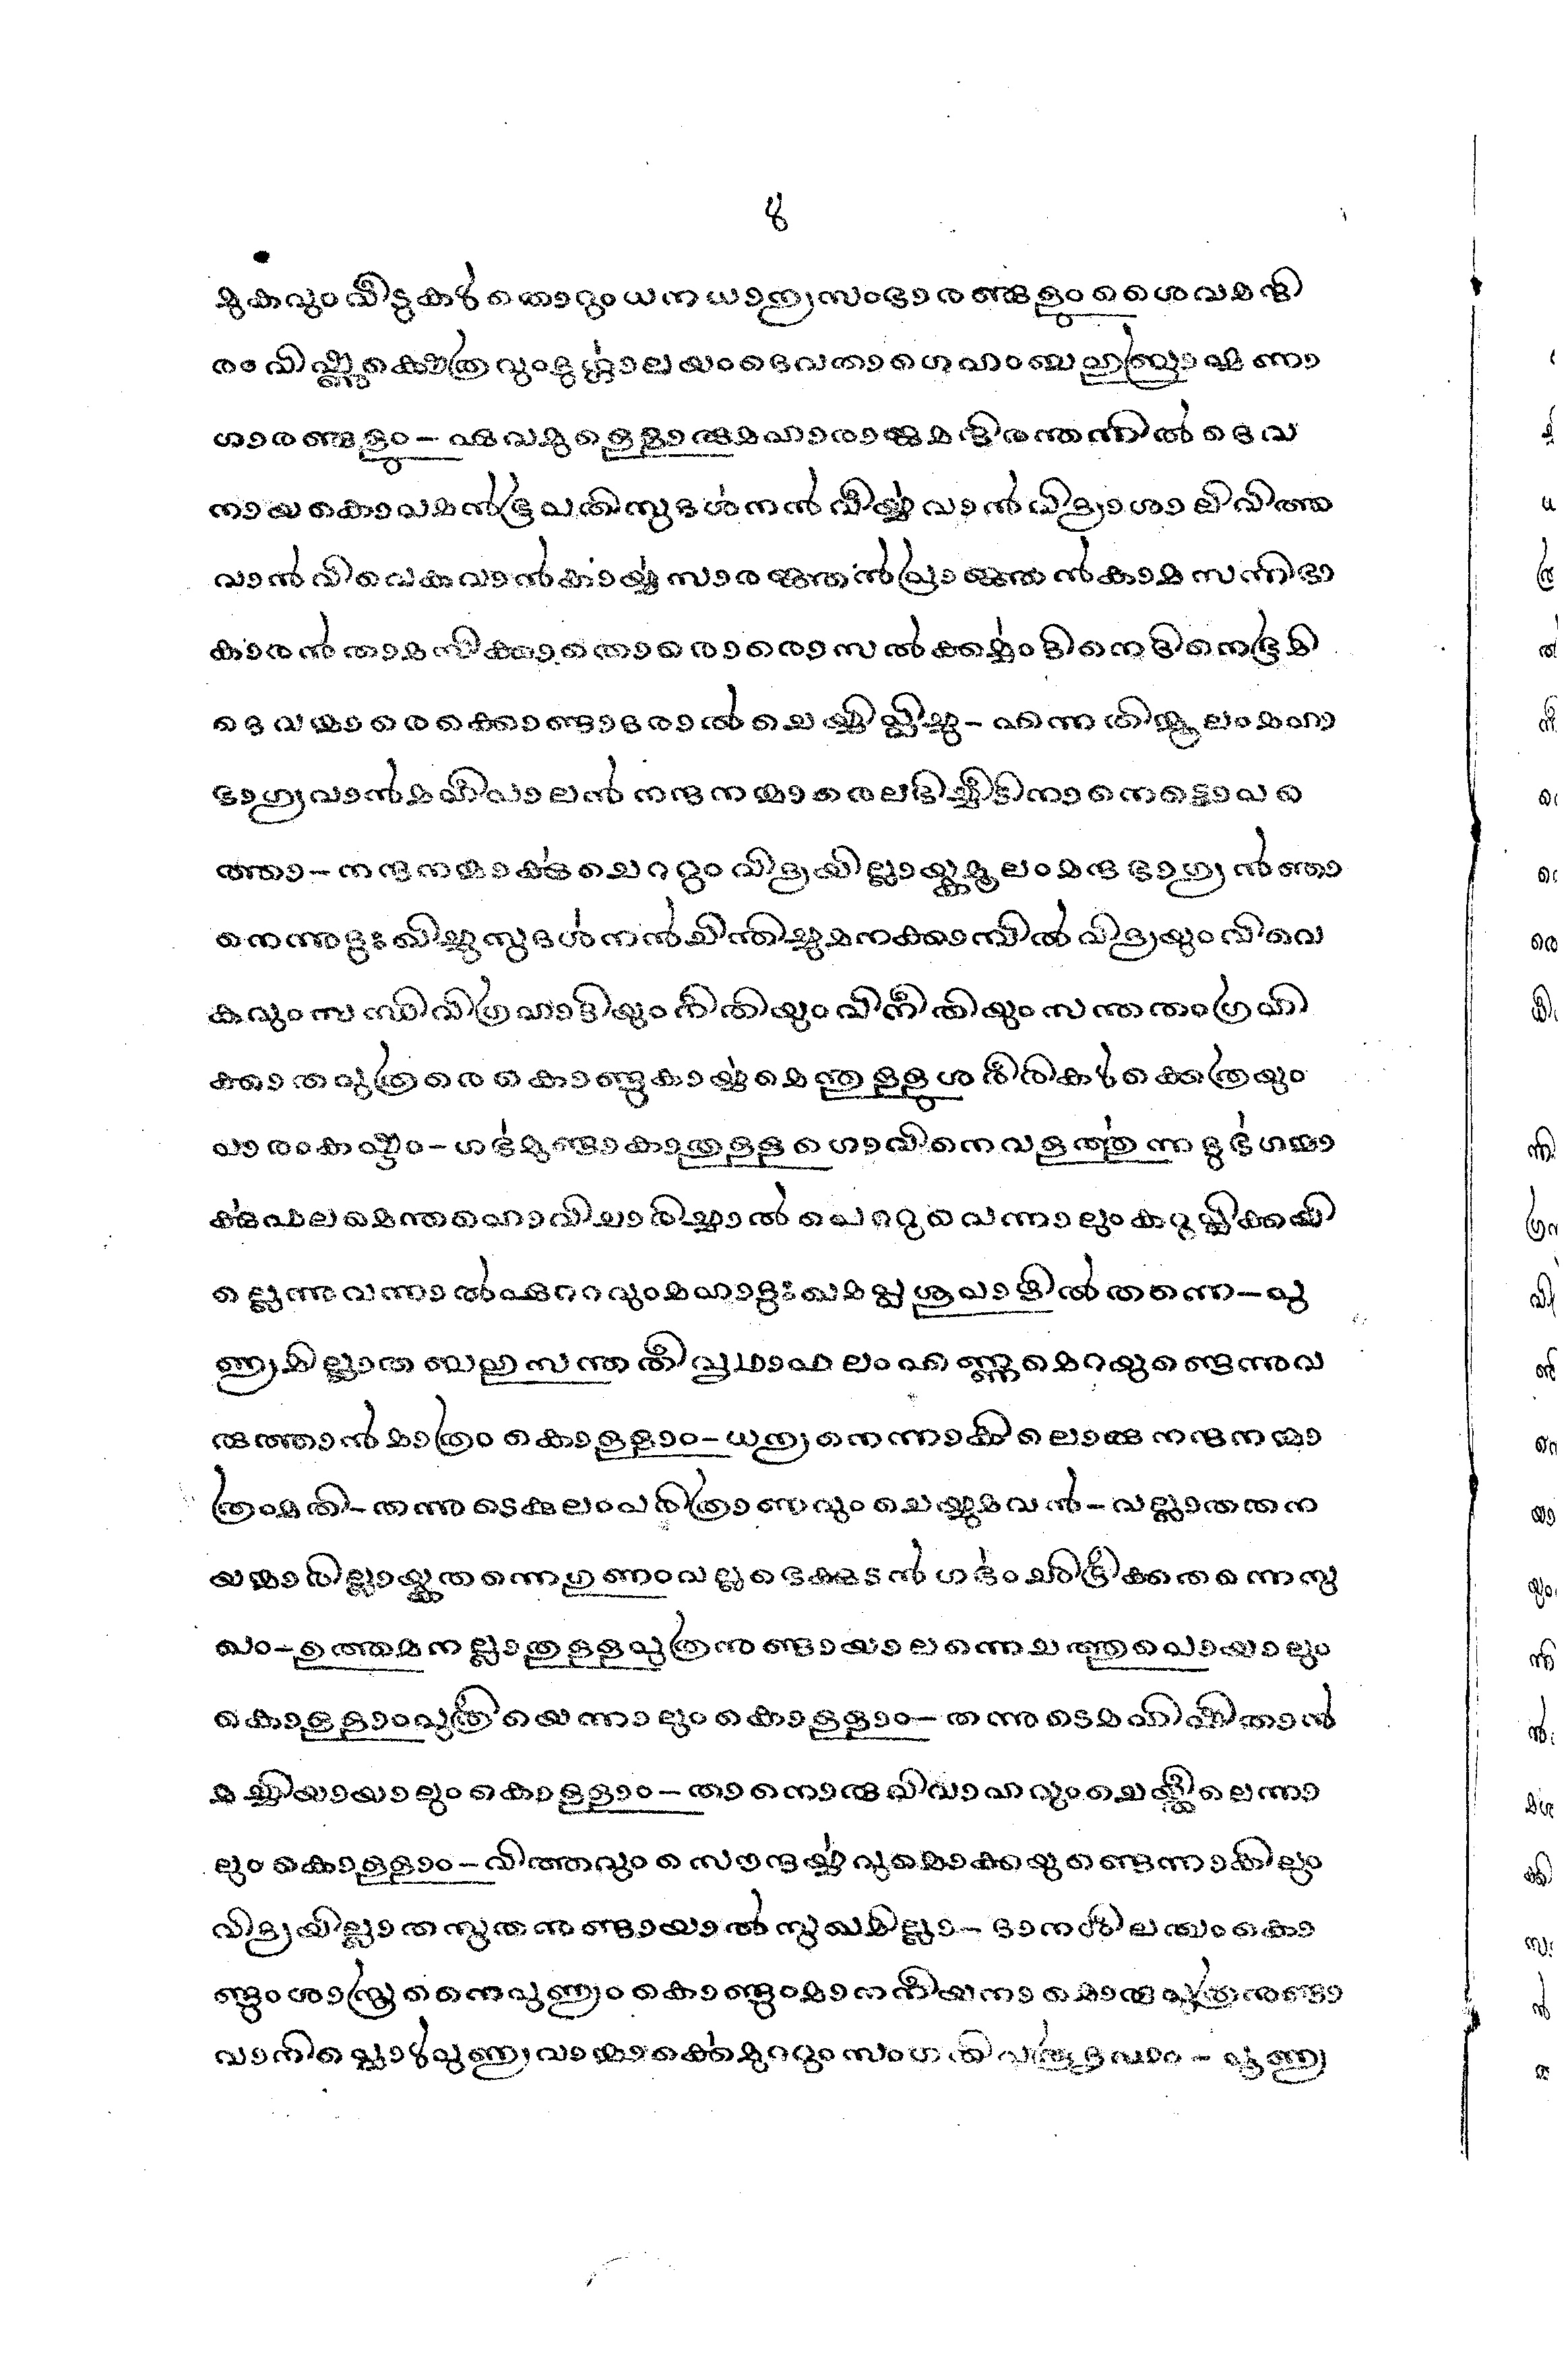 ൪
മുകവുംവീട്ടുകൾതൊറ്റുംധനധാന്യസംഭാരങ്ങളുംശൈവമന്ദി
രംവിഷ്ണുക്ഷെത്രവുംദുൎഗ്ഗാലയംദെവതാഗെഹംബഹുബ്രാഹ്മണാ
ഗാരങ്ങളും-എവമുളെളാരുമഹാരാജമന്ദിരന്തന്നിൽദെവ
നായകൊപമൻഭൂപതിസുദൎശനൻവീൎയ്യവാൻവിദ്യാശാലിവിത്ത
വാൻവിവെകവാൻകാൎയ്യസാരജ്ഞൻപ്രാജ്ഞൻകാമസന്നിഭാ
കാരൻതാമസിക്കാതൊരൊരൊസൽക്കൎമ്മംദിനെദിനെഭൂമി
ദെവന്മാരെക്കൊണ്ടാദരാൽചെയ്യിപ്പിച്ചു-എന്നതിന്മൂലംമഹാ
ഭാഗ്യവാൻമഹീപാലൻനന്ദനന്മാരെലഭിച്ചീടിനാനെട്ടൊപത
ത്താ-നന്ദനന്മാൎക്കുചെററ്റുംവിദ്യയില്ലായ്കമൂലംമന്ദഭാഗ്യൻഞാ
നെന്നുദുഃഖിച്ചുസുദൎശനൻചിന്തിച്ചുമനക്കാമ്പിൽവിദ്യയുംവിവെ
കവുംസന്ധിവിഗ്രഹാദിയുംനീതിയുംവിനീതിയുംസന്തതംഗ്രഹി
ക്കാതപുത്രരെകൊണ്ടുകാൎയ്യമെന്തുളളുശരീരികൾക്കെത്രയും
പാരംകഷ്ടം-ഗൎഭമുണ്ടാകാതുളളഗൊവിനെവളൎത്തുന്നദുൎഭഗന്മാ
ൎക്കുഫലമെന്തഹൊവിചാരിച്ചാൽപെററ്റുവെന്നാലുംകറപ്പിക്കയി
ല്ലെന്നുവന്നാൽഏററവുംമഹാദുഃഖമപ്പശുപാളിൽതന്നെ-പു
ണ്യമില്ലാതബഹുസന്തതീവൃഥാഫലംഎണ്ണമെറയുണ്ടെന്നുവ
രുത്താൻമാത്രംകൊളളാം-ധന്യനെന്നാകിലൊരുനന്ദനന്മാ
ത്രംമതി-തന്നുടെകുലംപരിത്രാണവുംചെയ്യുമവൻ-വല്ലാതതന
യന്മാരില്ലായ്കതന്നെഗുണംവല്ലഭെക്കുടൻഗൎഭംഛിദ്രിക്കതന്നെസു
ഖം-ഉത്തമനല്ലാതുളളപുത്രനുണ്ടായാലന്നെചത്തുപൊയാലും
കൊളളാംപുത്രിയെന്നാലുംകൊളളാം-തന്നുടെമഹിഷിതാൻ
മച്ചിയായാലുംകൊളളാം-താനൊരുവിവാഹവുംചെയ്തീലെന്നാ
ലുംകൊളളാം-വിത്തവുംസൌന്ദൎയ്യവുമൊക്കയുണ്ടെന്നാകിലും
വിദ്യയില്ലാതസുതനുണ്ടായാൽസുഖമില്ലാ-ദാനശീലത്വംകൊ
ണ്ടുംശാസ്ത്രനൈപുണ്യംകൊണ്ടുംമാനനീയനാമൊരുപുത്രനുണ്ടാ
വാനിപ്പൊൾപുണ്യവാന്മാൎക്കെമുററ്റുംസംഗതിവന്നൂദൃഢാം-പൂണ്യ